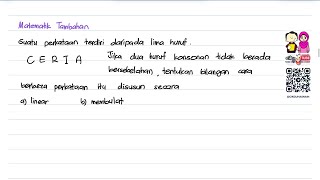 Matematik Tambahan
Suatu perkataan terdiri daripada lima huruf.
C E R I A Jika dua huruf konsonan tidak berada
bersebelahan, tentukan bilangan cara
berbeza perkataan itu disusun secara
a) linear b) membulat